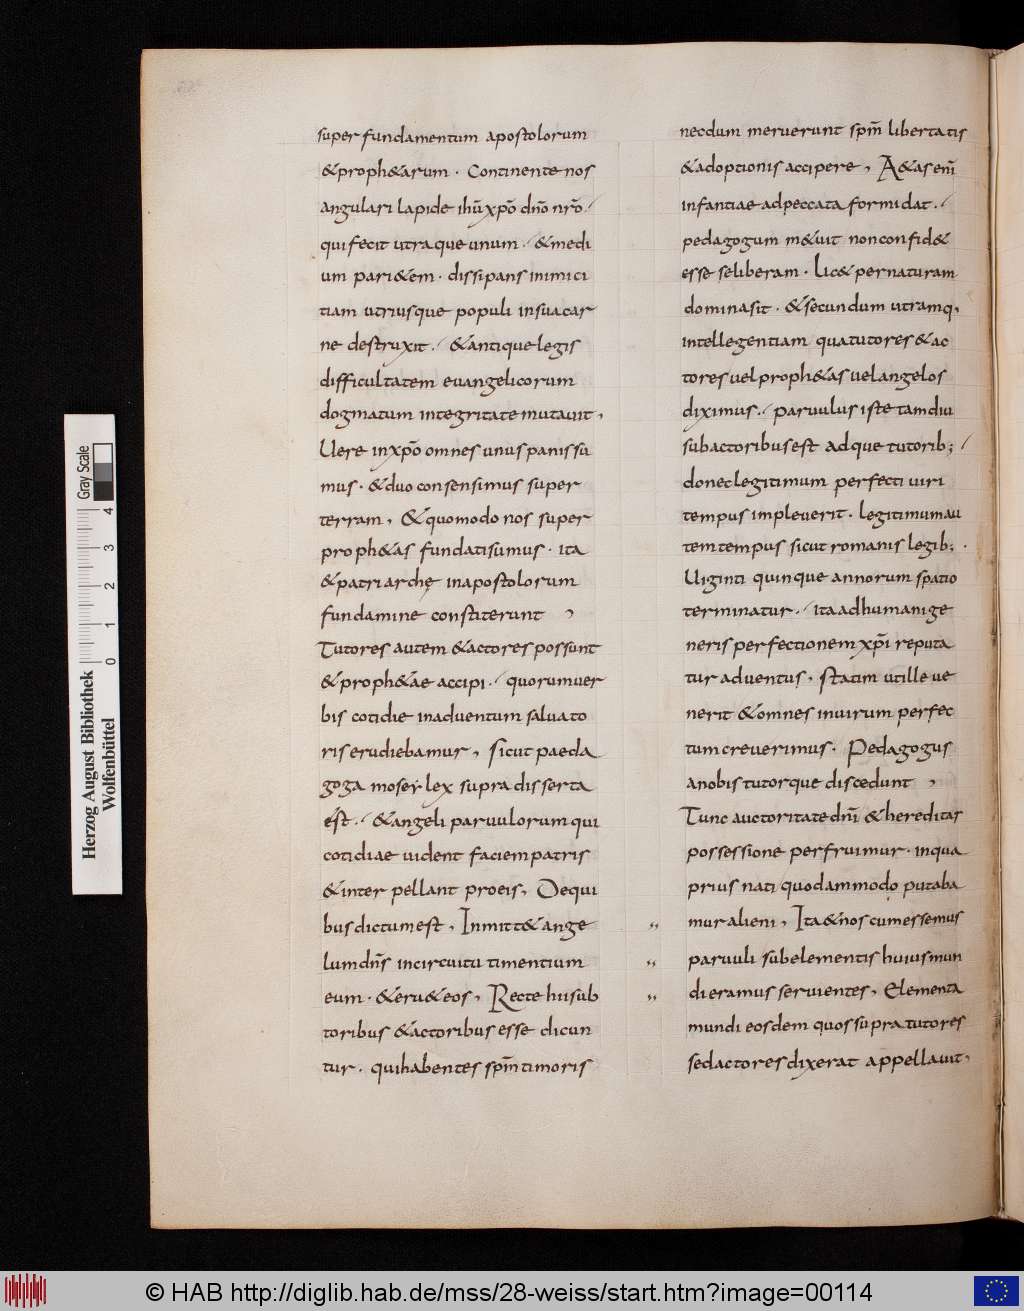 super fundamentum apostolorum
& proph&arum . Continente nos
angulari lapide ihū xpō dn̄o nr̄o ./
qui fecit utraque unum ./ & medi
um pari&em . dissipans inimici
tiam utriusque populi in sua car
ne destruxit ./ & antique legis
difficultatem euangelicorum
dogmatum integritate mutauit ,
Uere in xpō omnes unus panis su
mus . & duo consensimus super
terram , & quomodo nos super
proph&as fundati sumus . ita
& patriarchę in apostolorum
fundamine constiterunt ,
Tutores autem & actores possunt
& proph&ae accipi ./ quorum uer
bis cotidie in aduentum saluato
ris erudiebamur , sicut paeda
goga mosey lex supra disserta
est ./ & angeli paruulorum qui
cotidiae uident faciem patris
& interpellant pro eis , De qui
bus dictum est , Inmitt& ange
lum dn̄s in circuitu timentium
eum . & eru& eos , Recte hii sub
toribus & actoribus esse dicun
tur . qui habentes spm̄ timoris
necdum meruerunt spm̄ libertatis
& adoptionis accipere , A&as enī
infantiae ad peccata formidat ./
pedagogum m&uit non confid&
esse se liberam . Lic& per naturam
domina sit . & secundum utramq,
intellegentiam qua tutores & ac
tores uel proph&as uel angelos
diximus ./ paruulus iste tamdiu
sub actoribus est adque tutorib; /
donec legitimum perfecti uiri
tempus impleuerit . legitimum au
tem tempus sicut romanis legib; .
Uiginti quinque annorum spatio
terminatur ./ ita ad humani ge
neris perfectionem xp̄i reputa
tur aduentus , statim ut ille ue
nerit & omnes in uirum perfec
tum creuerimus . Pedagogus
a nobis tutorque discedunt ,
Tunc auctoritate dn̄i & hereditas
possessione perfruimur . in qua
prius nati quodammodo putaba
mur alieni , Ita & nos cum essemus
paruuli sub elementis huius mun
di eramus seruientes , Elementa
mundi eosdem quos supra tutores
sed actores dixerat appellauit ,
,,
,,
,,
Herzog August Bibliothek
Wolfenbüttel
0 1 2 3 4
Gray Scale
© HAB http://diglib.hab.de/mss/28-weiss/start.htm?image=00114